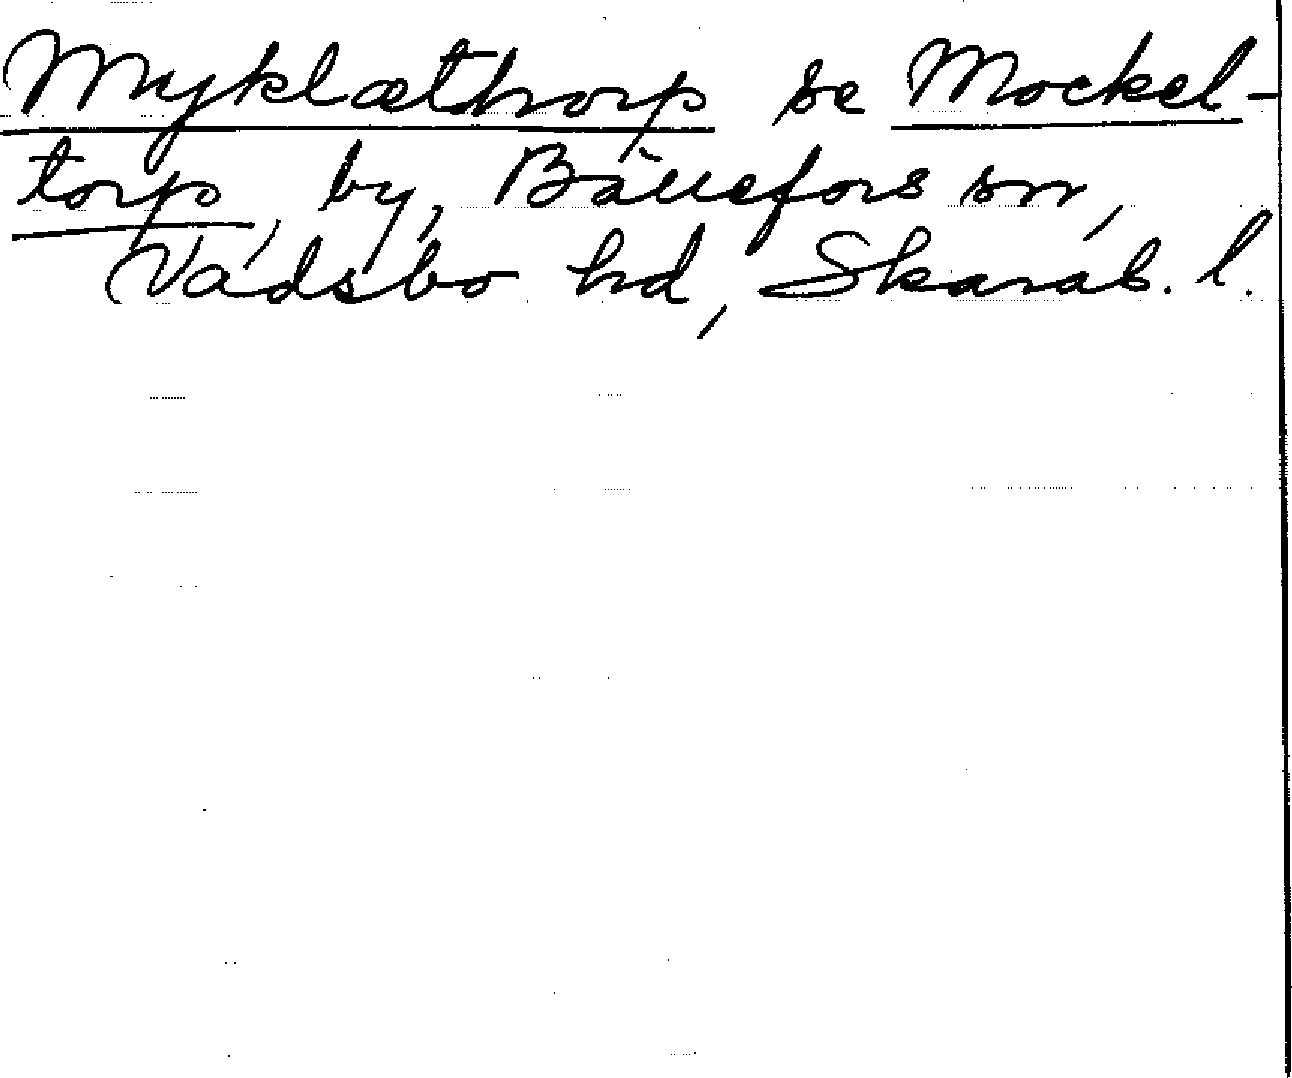 Myklæthorp se Mockel-
torp, by, Bällefors sn,
Vadsbo hd, Skarab. l.